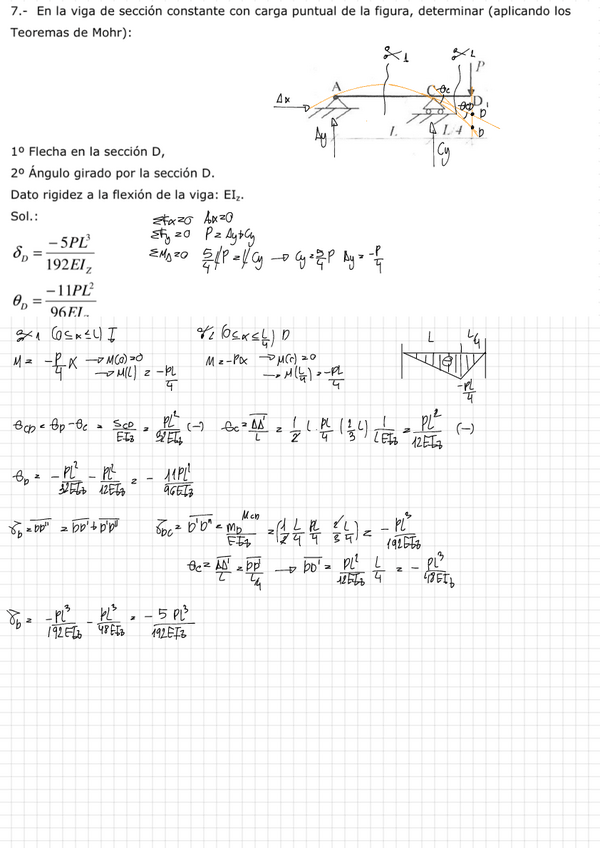 7.- En la viga de sección constante con carga puntual de la figura, determinar (aplicando los
Teoremas de Mohr):
✂1 ✂2
P
A C θc D
Ax θD D'
D
Ay L Cy L/4
1º Flecha en la sección D,
2º Ángulo girado por la sección D.
Dato rigidez a la flexión de la viga: EIz.
Sol.:
δD = -5PL³ / 192EIZ
θD = -11PL² / 96EI
ΣFx=0 Ax=0
ΣFy=0 P = Ay+Cy
ΣMA=0 5/4 LP = L Cy → Cy = 5/4 P Ay = -P/4
✂1 (0≤x≤L) I ✂2 (0≤x≤L/4) D
M = -P/4 x → M(0)=0 → M(L) = -PL/4
M = -Px → M(0)=0 → M(L/4) = -PL/4
L L/4
⊖
-PL/4
θCD = θD - θC = SCD/EIz = PL²/32EIz (-) θC = AA'/L = 1/2 L PL/4 (1/3 L) 1/LEIz = PL²/12EIz (-)
θD = -PL²/32EIz - PL²/12EIz = - 11PL²/96EIz
δD = DD'' = DD' + D'D'' δDC = D'D'' = MCD mD/EIz = (1/2 L/4 PL/4 2/3 L/4) = -PL³/192EIz
θC = AA'/L = DD'/L/4 → DD' = PL²/12EIz L/4 = - PL³/48EIz
δD = -PL³/192EIz - PL³/48EIz = - 5PL³/192EIz